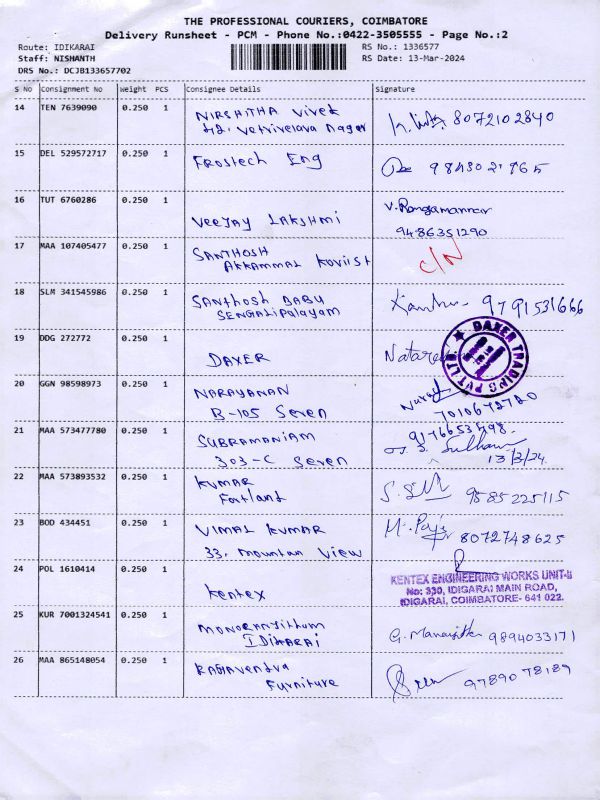 THE PROFESSIONAL COURIERS, COIMBATORE
Delivery Runsheet - PCM - Phone No.:0422-3505555 - Page No.:2
Route: IDIKARAI
RS No.: 1336577
Staff: NISHANTH
RS Date: 13-Mar-2024
DRS No.: DCJB133657702
S No Consignment No Weight PCS Consignee Details Signature
14 TEN 7639090 0.250 1 NIRSHITHA Vivek 8072102840
42. Vetrivelava Nager
15 DEL 529572717 0.250 1 FROSTECH Eng
16 TUT 6760286 0.250 1 VEEJAY LAKSHMI V. Rangamannar
9486351290
17 MAA 107405477 0.250 1 SANTHOSH C/N
AKKAMMAL Koviist
18 SLM 341545986 0.250 1 SANthosh BABU 9791531666
SENGALIPALAYAM
19 DDG 272772 0.250 1 DAXER
DAXER TRADING PVT LTD
20 GGN 98598973 0.250 1 NARAYANAN
B-105 Seven 7010672720
21 MAA 573477780 0.250 1 SUBRAMANIAM 9176653498
303-C Seven 13/3/24
22 MAA 573893532 0.250 1 KUMAR 9585225115
Fortland
23 BOD 434451 0.250 1 VIMAL KUMAR 8072748625
33. Mountain View
24 POL 1610414 0.250 1 Kentex
KENTEX ENGINEERING WORKS UNIT-II
No: 330, IDIGARAI MAIN ROAD,
IDIGARAI, COIMBATORE- 641 022.
25 KUR 7001324541 0.250 1 MONORANJITHUM 9894033171
IDIKARAI
26 MAA 865148054 0.250 1 RAGHAVENTRA 9789078189
Furniture